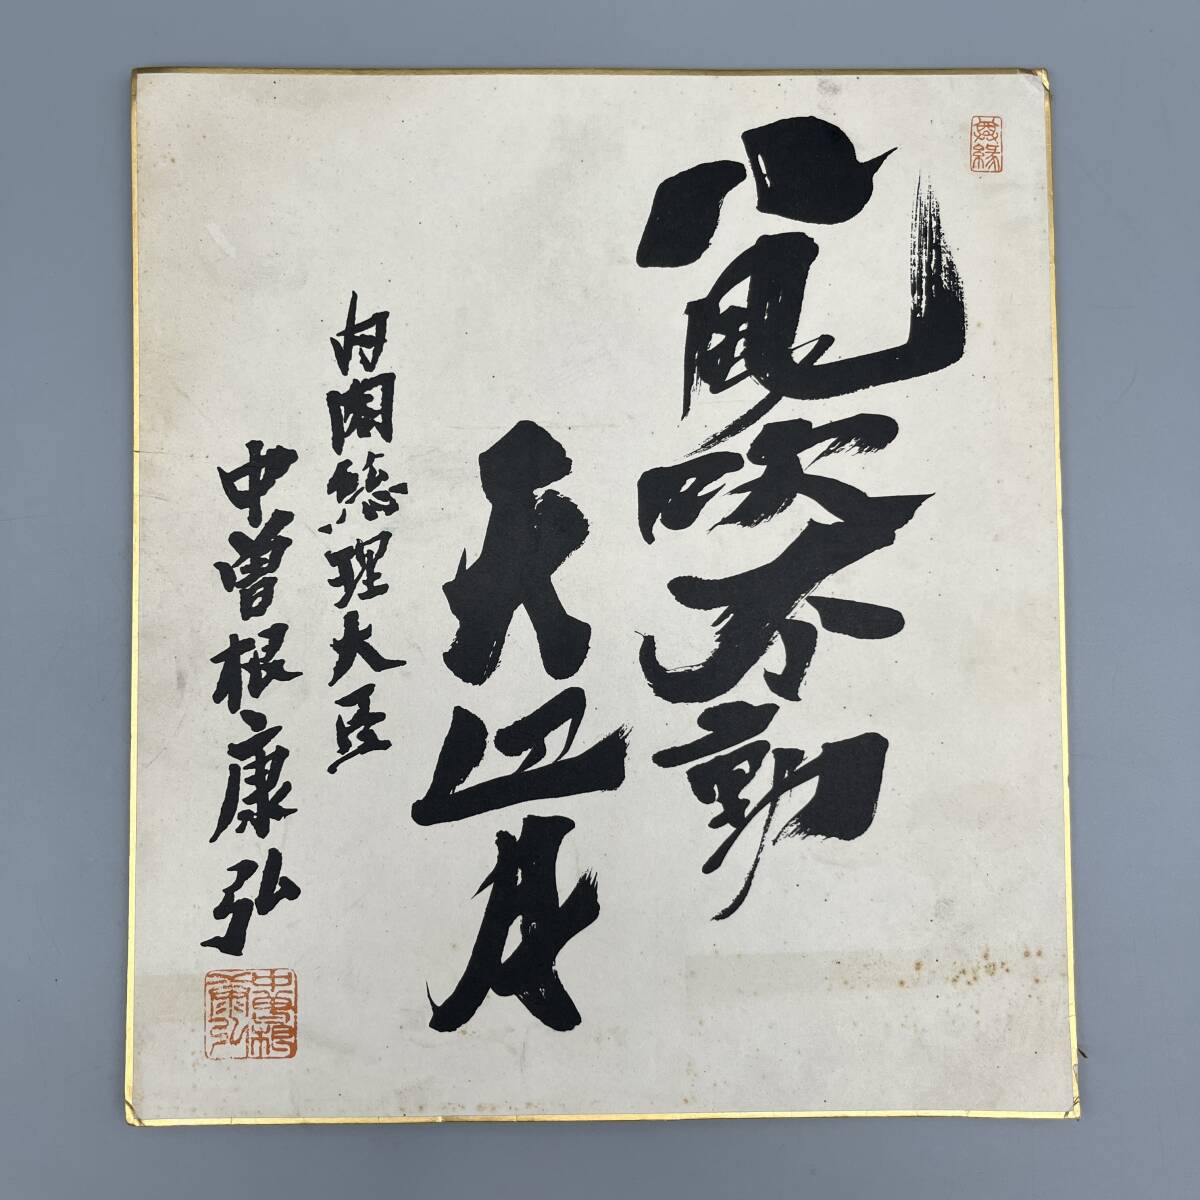 八風吹不動
天辺月
内閣總理大臣
中曽根康弘
中曽根康弘